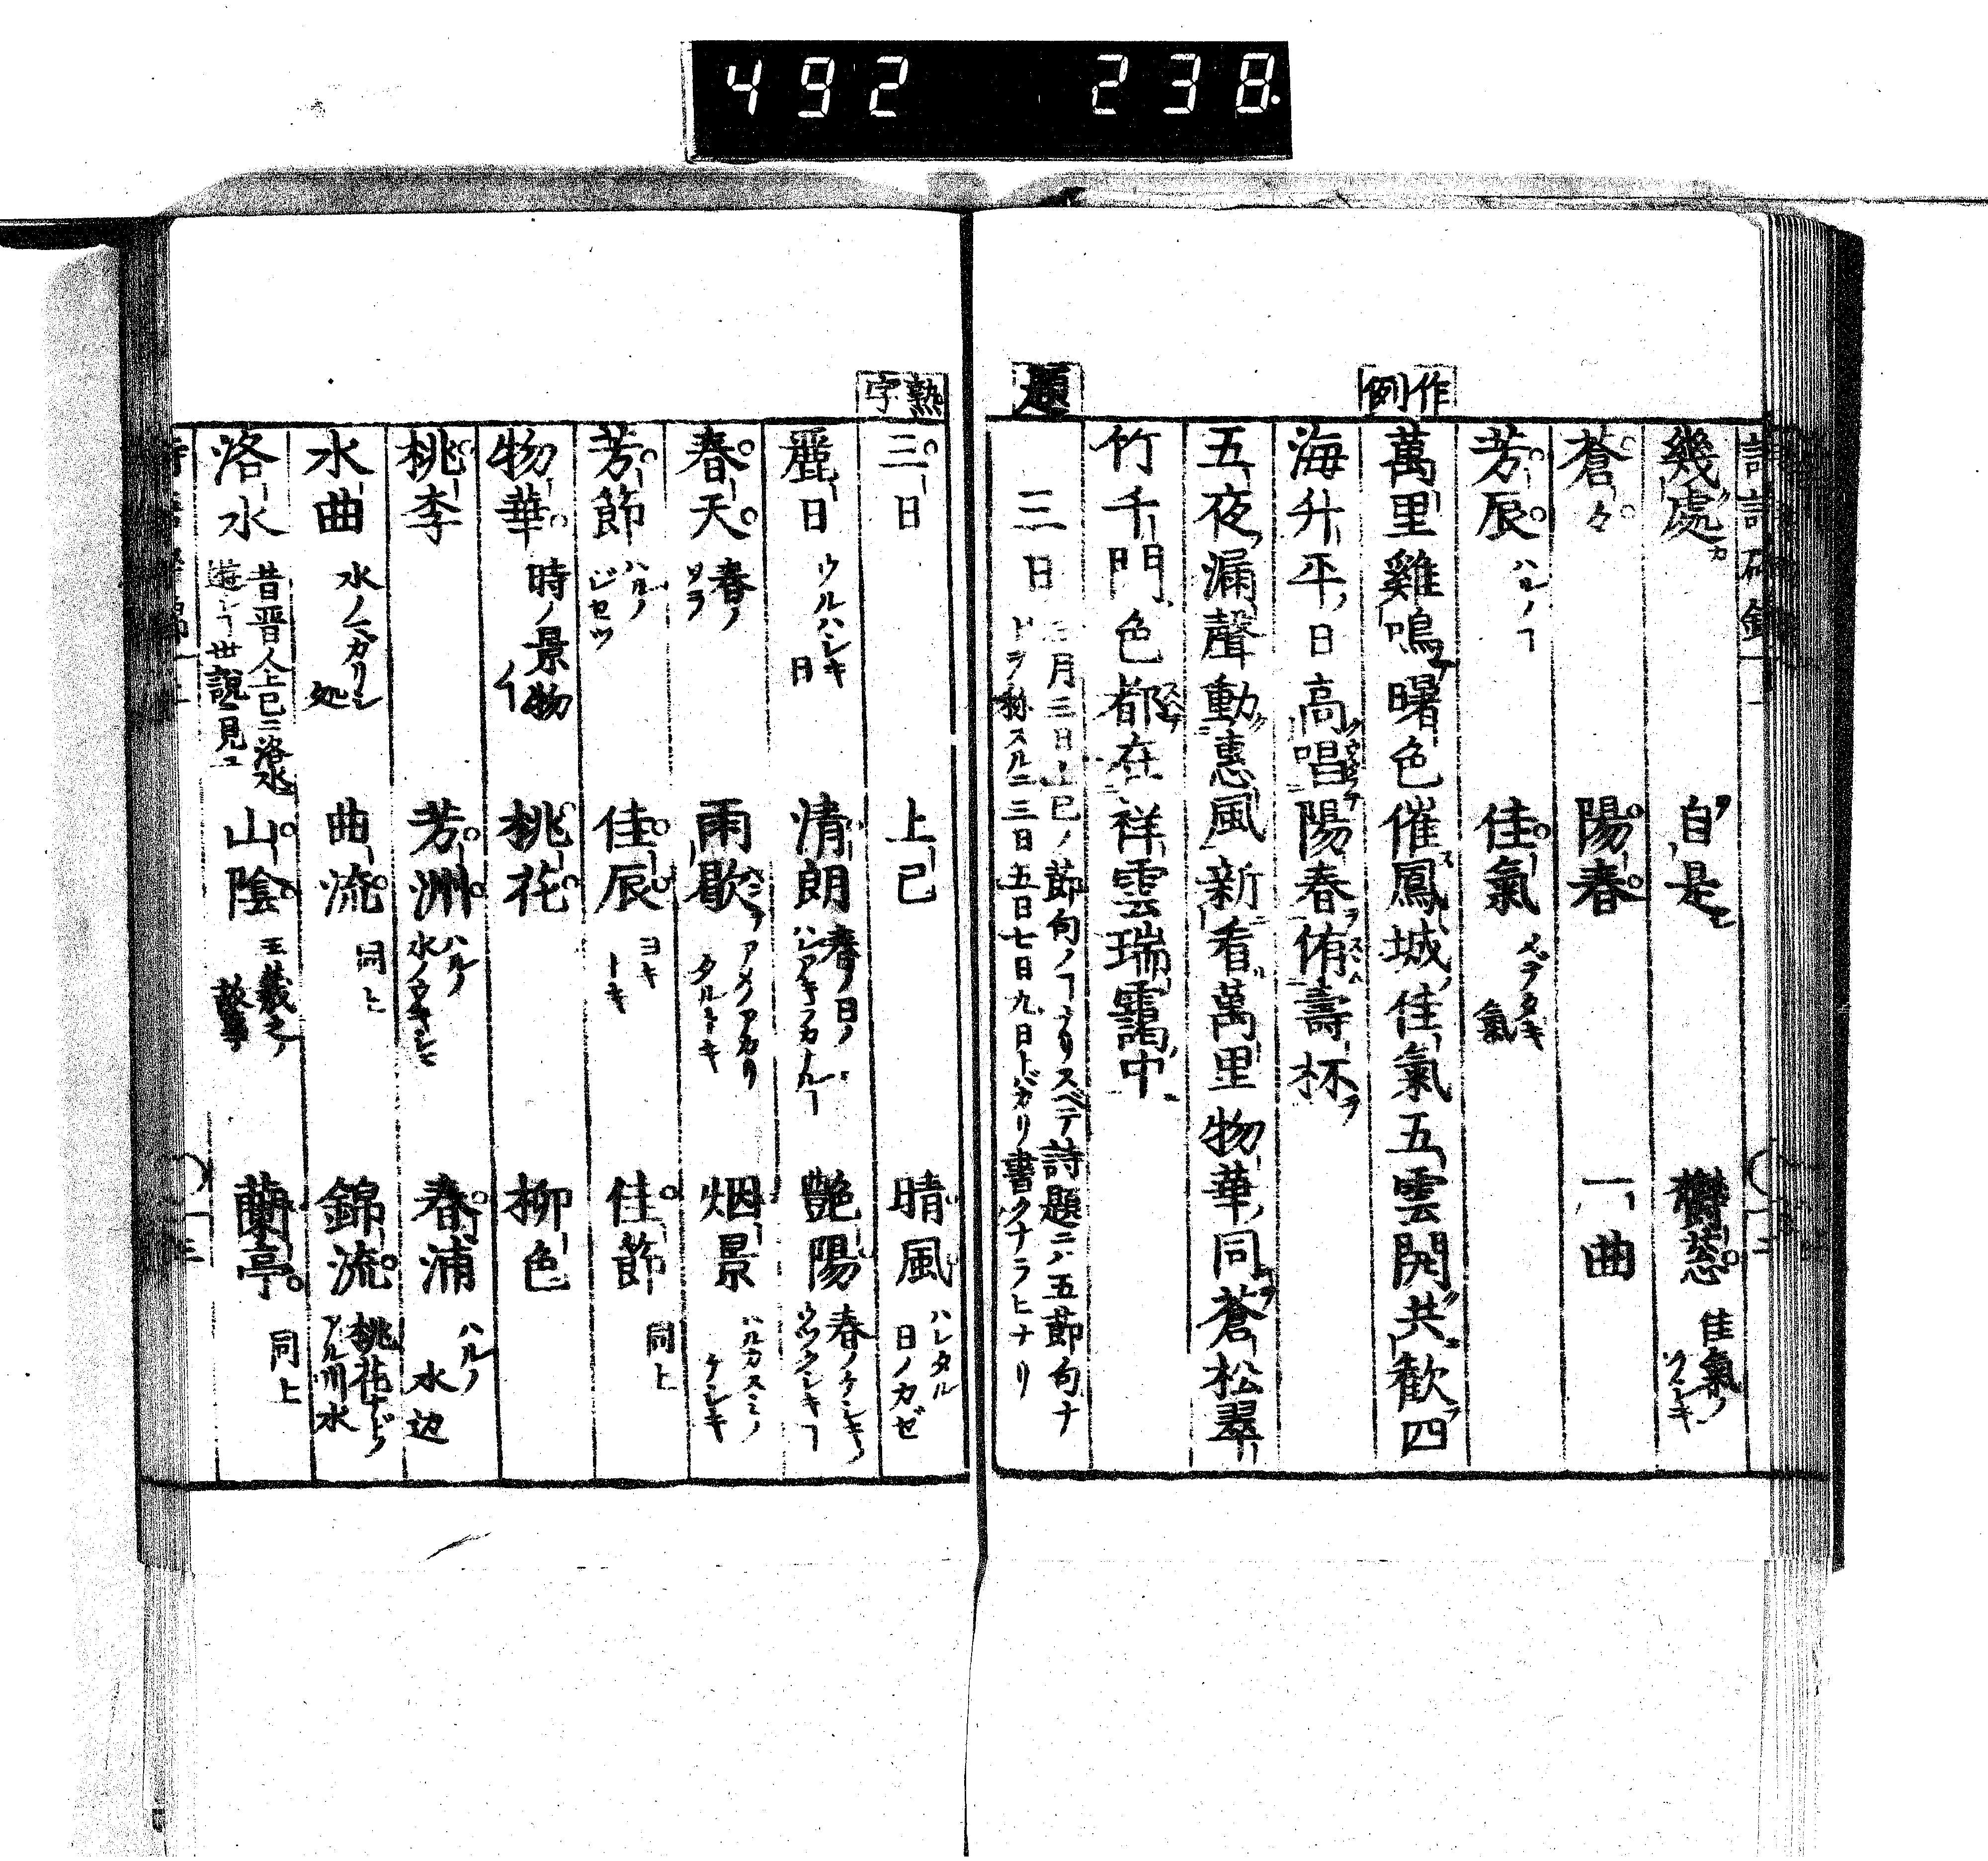 492 238
幾處 自是 鬱葱 佳氣ノ
蒼々 陽春 一曲
芳辰 佳氣 メデタキ氣
作例
萬里雞鳴曙色催鳳城佳氣五雲開共歓四
海升平日高唱陽春侑壽杯
五夜漏聲動惠風新看萬里物華同蒼松翠
竹千門色都在祥雲瑞靄中
題
三日 三月三日上巳ノ節句ノヿナリスベテ詩題ニハ五節句ナ
ドヲ称スルニ三日五日七日九日トバカリ書クナラヒナリ
熟字
三日 上巳 晴風 ハレタル日ノカゼ
麗日 ウルハシキ日 清朗 春ノ日ノハレアキラカナルヿ 艶陽 春ノケシキノウツクシキヿ
春天 春ノソラ 雨歇 アメノアガリタルトキ 烟景 ハルカスミノケシキ
芳節 ハルノジセツ 佳辰 ヨキトキ 佳節 同上
物華 時ノ景物 桃花 柳色
桃李 芳洲 ハルノ 春浦 ハルノ水辺
水曲 水ノマガリシ処 曲流 同上 錦流 桃花ナドノアル川水
洛水 昔晋人上巳ニ洛水ニ遊シヿ世説ニ見ユ 山陰 王羲之ノ故事 蘭亭 同上